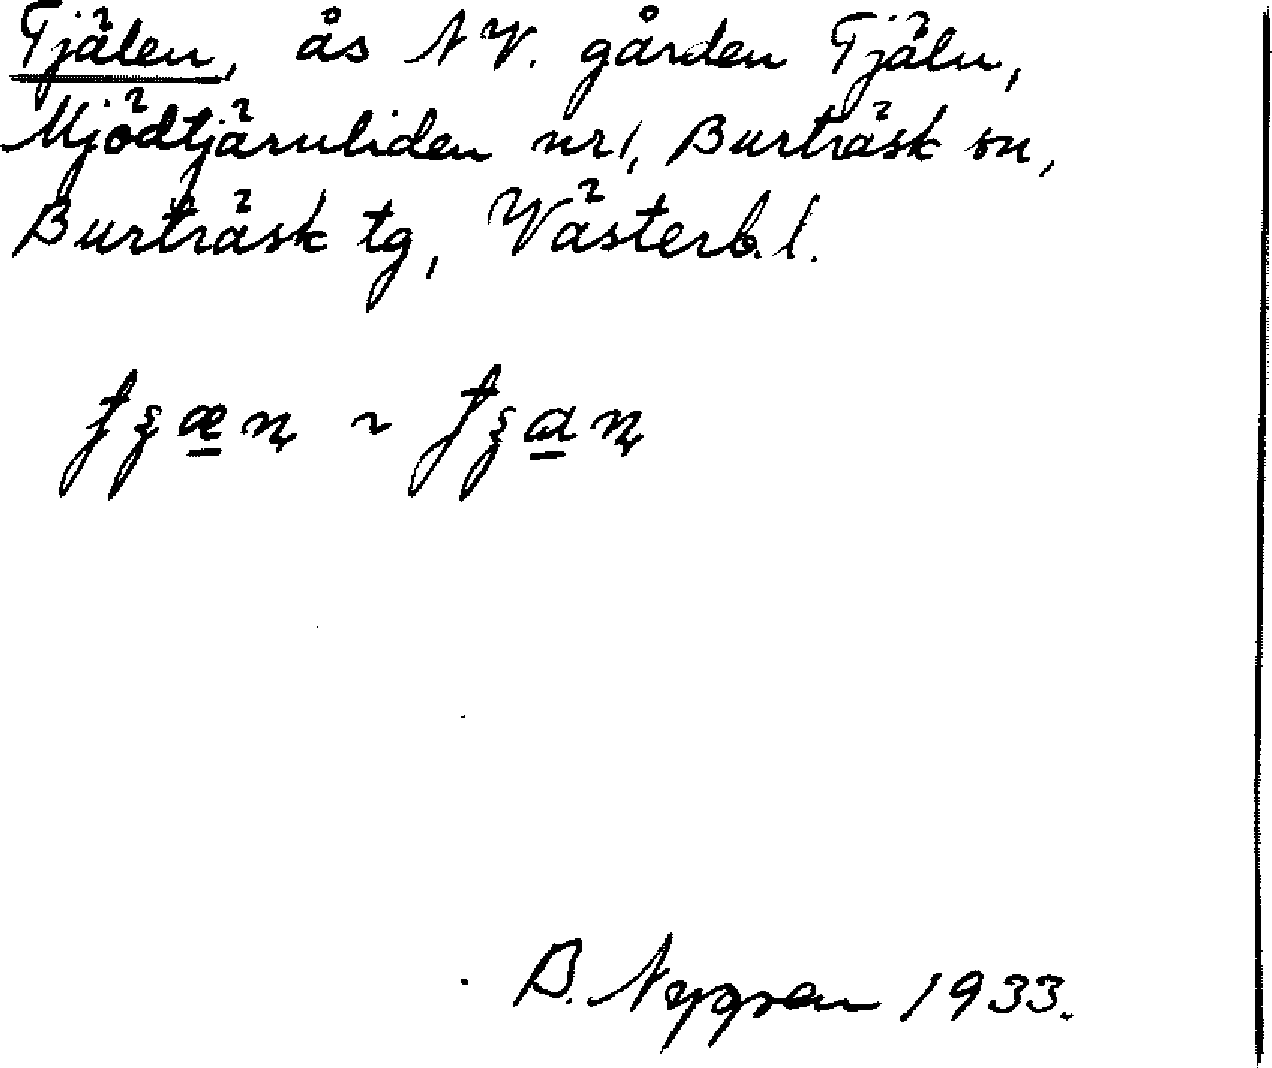 Tjälen, ås NV. gården Tjäln,
Mjödtjärnliden nr 1, Burträsk sn,
Burträsk tg, Västerb. l.
B. Nygren 1933.